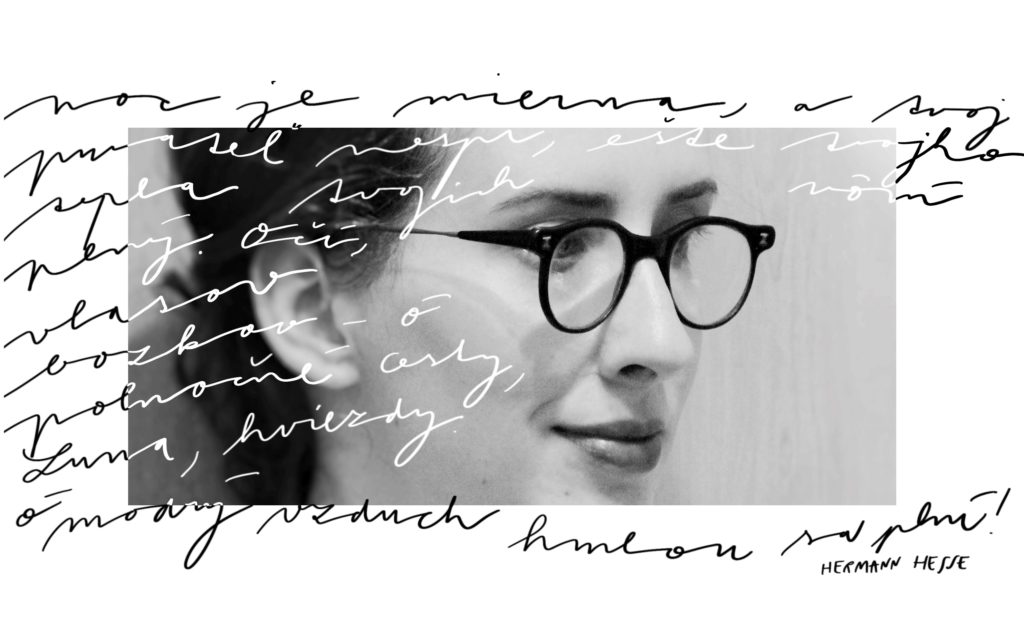 noc je mierna, a svoj
nespí, ešte svojho
svojich vôní
Očí,
vlasov
bozkov – ó
polnočné cesty,
Luna, hviezdy.
ó modrý vzduch hmlou sa plní!
HERMANN HESSE